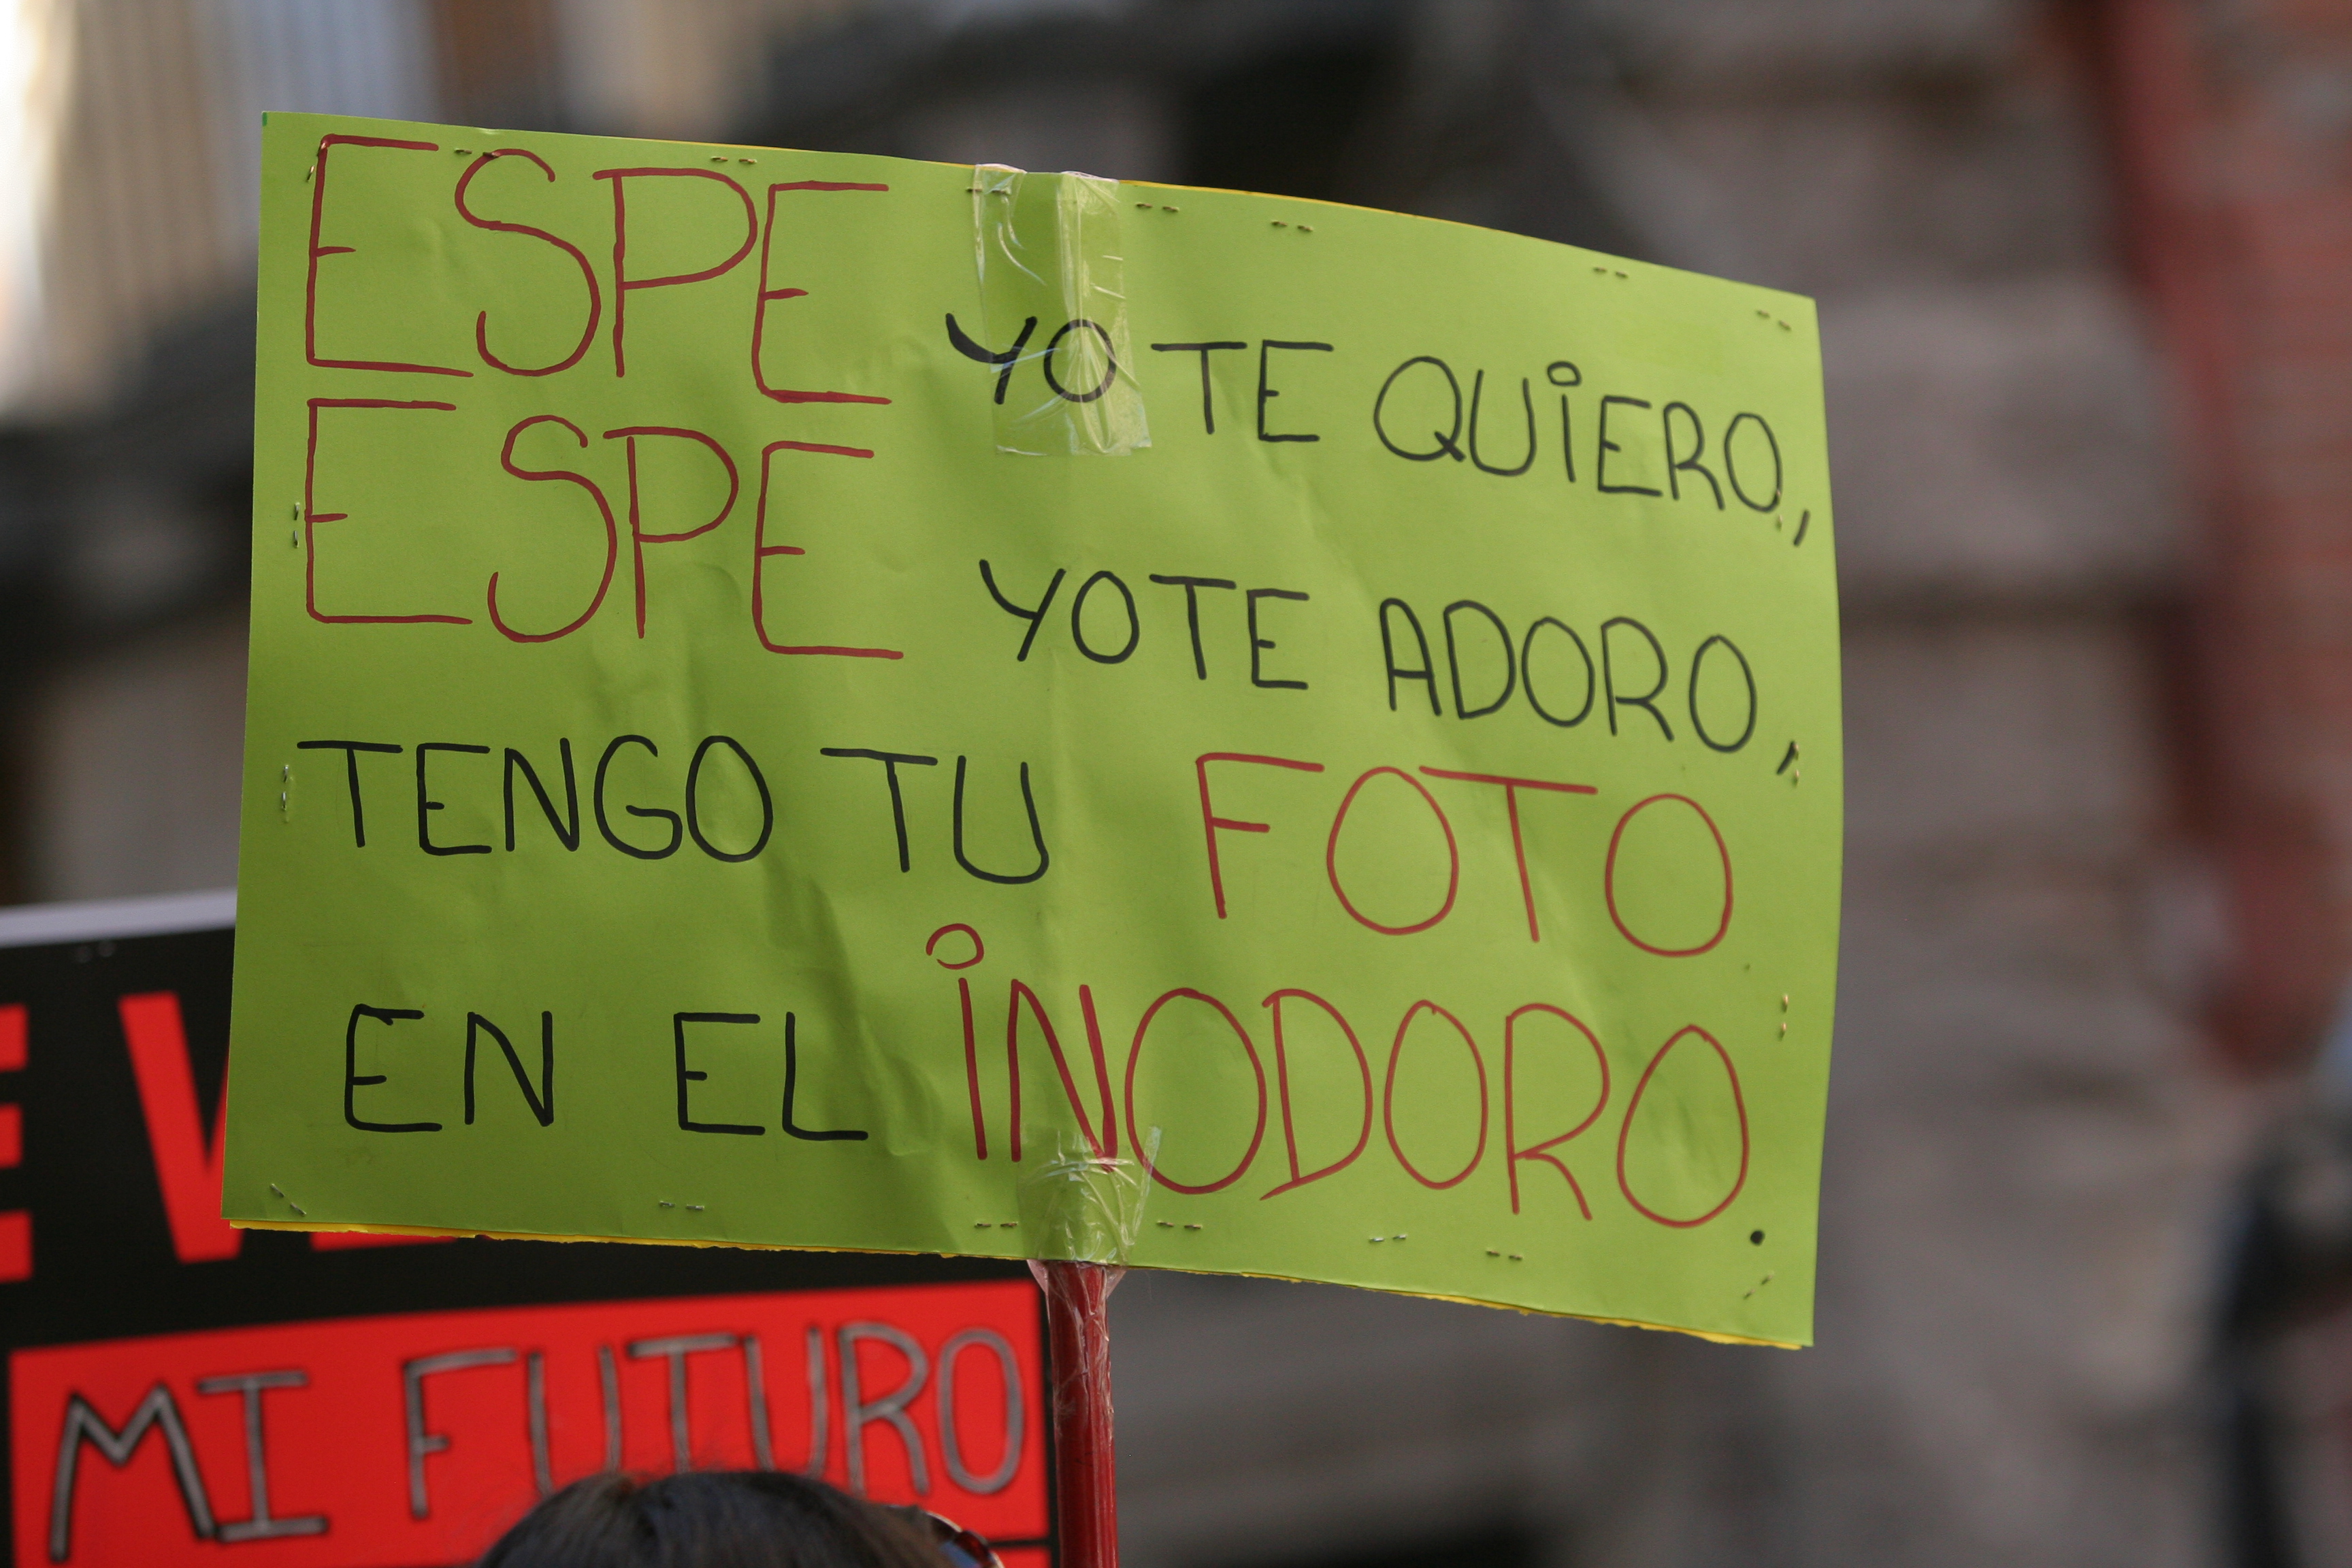 ESPE YO TE QUiERO,
ESPE YO TE ADORO,
TENGO TU FOTO
EN EL iNODORO.
MI FUTURO